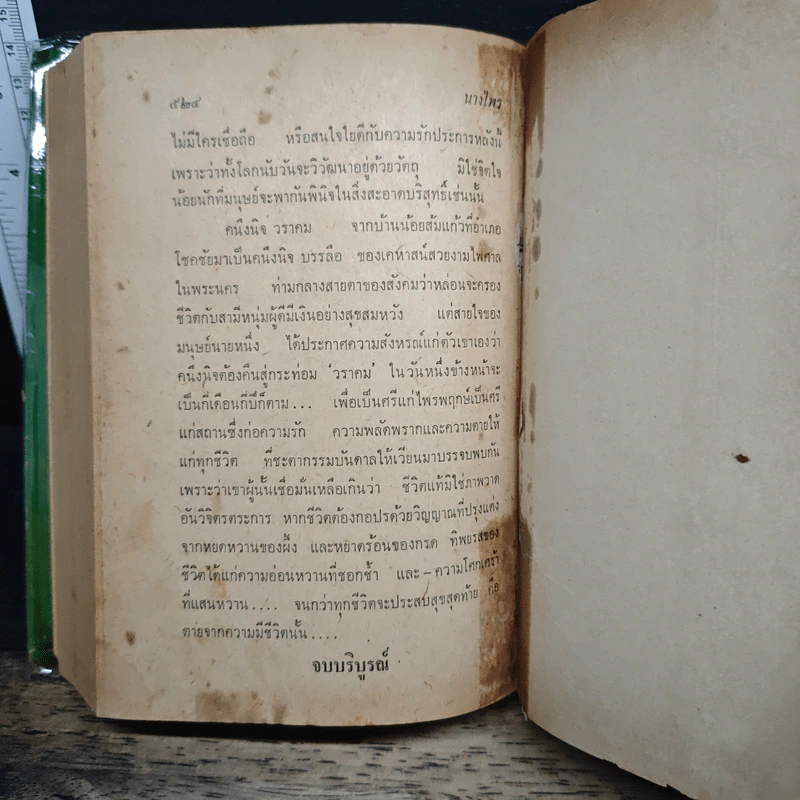 ๕๒๔ นางไพร
ไม่มีใครเชื่อถือ หรือสนใจใยดีกับความรักประการหลังนี้
เพราะว่าทั้งโลกนับวันจะวิวัฒนาอยู่ด้วยวัตถุ มิใช่จิตใจ
น้อยนักที่มนุษย์จะพากันพินิจในสิ่งสะอาดบริสุทธิ์เช่นนั้น
คนึงนิจ วราคม จากบ้านน้อยส้มแก้วที่อำเภอ
โชคชัยมาเป็นคนึงนิจ บรรลือ ของเคหาสน์สวยงามไพศาล
ในพระนคร ท่ามกลางสายตาของสังคมว่าหล่อนจะครอง
ชีวิตกับสามีหนุ่มผู้ดีมีเงินอย่างสุขสมหวัง แต่สายใจของ
มนุษย์นายหนึ่ง ได้ประกาศความสังหรณ์แก่ตัวเขาเองว่า
คนึงนิจต้องคืนสู่กระท่อม ‘วราคม’ ในวันหนึ่งข้างหน้าจะ
เป็นกี่เดือนกี่ปีก็ตาม... เพื่อเป็นศรีแก่ไพรพฤกษ์เป็นศรี
แก่สถานซึ่งก่อความรัก ความพลัดพรากและความตายให้
แก่ทุกชีวิต ที่ชะตากรรมบันดาลให้เวียนมาบรรจบพบกัน
เพราะว่าเขาผู้นั้นเชื่อมั่นเหลือเกินว่า ชีวิตแท้มิใช่ภาพวาด
อันวิจิตรตระการ หากชีวิตต้องกอปรด้วยวิญญาณที่ปรุงแต่ง
จากหยดหวานของผึ้ง และหยาดร้อนของกรด ทิพยรสของ
ชีวิตได้แก่ความอ่อนหวานที่ชอกช้ำ และ–ความโศกเศร้า
ที่แสนหวาน.... จนกว่าทุกชีวิตจะประสบสุขสุดท้าย คือ
ตายจากความมีชีวิตนั้น....
จบบริบูรณ์
15
14
13
12
4